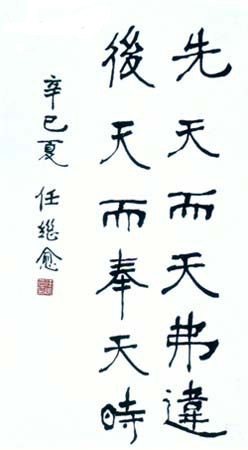 先天而天弗違
後天而奉天時
辛巳夏 任繼愈